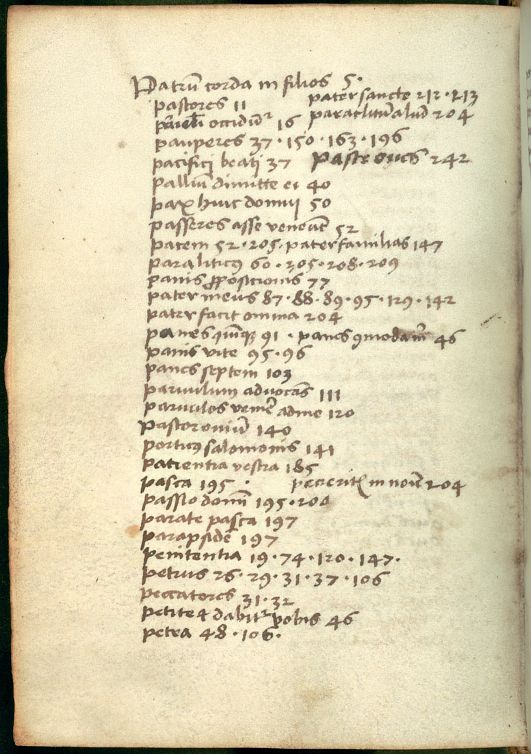 Patrū corda in filios 5.
pastores 11 pater sancte 212 · 213
occidūtʳ 16 paraclitum aliud 204
pauperes 37 · 150 · 163 · 196
pacifici beati 37 Pasce oves 242
palliū dimitte ei 40
pax huic domui 50
passeres asse veneūt 52
pacem 52 · 205 · paterfamilias 147
paraliticus 60 · 205 · 208 · 209
panis ꝓpositionis 77
pater meus 87 · 88 · 89 · 95 · 129 · 142
pater facit omnia 204
panes quinqꝫ 91 · panes 46
panis vite 95 · 96
panes septem 103
parvulum advocans 111
parvulos venire ad me 120
Pastor oviū 140
porticꝰ salomonis 141
patientia vestra 185
pasca 195 · petieritis in noīe 204
passio domini 195 · 204
parate pasca 197
parapside 197
penitentia 19 · 74 · 120 · 147 ·
petrus 26 · 29 · 31 · 37 · 106
peccatores 31 · 32
petite & dabitʳ vobis 46
petra 48 · 106 ·